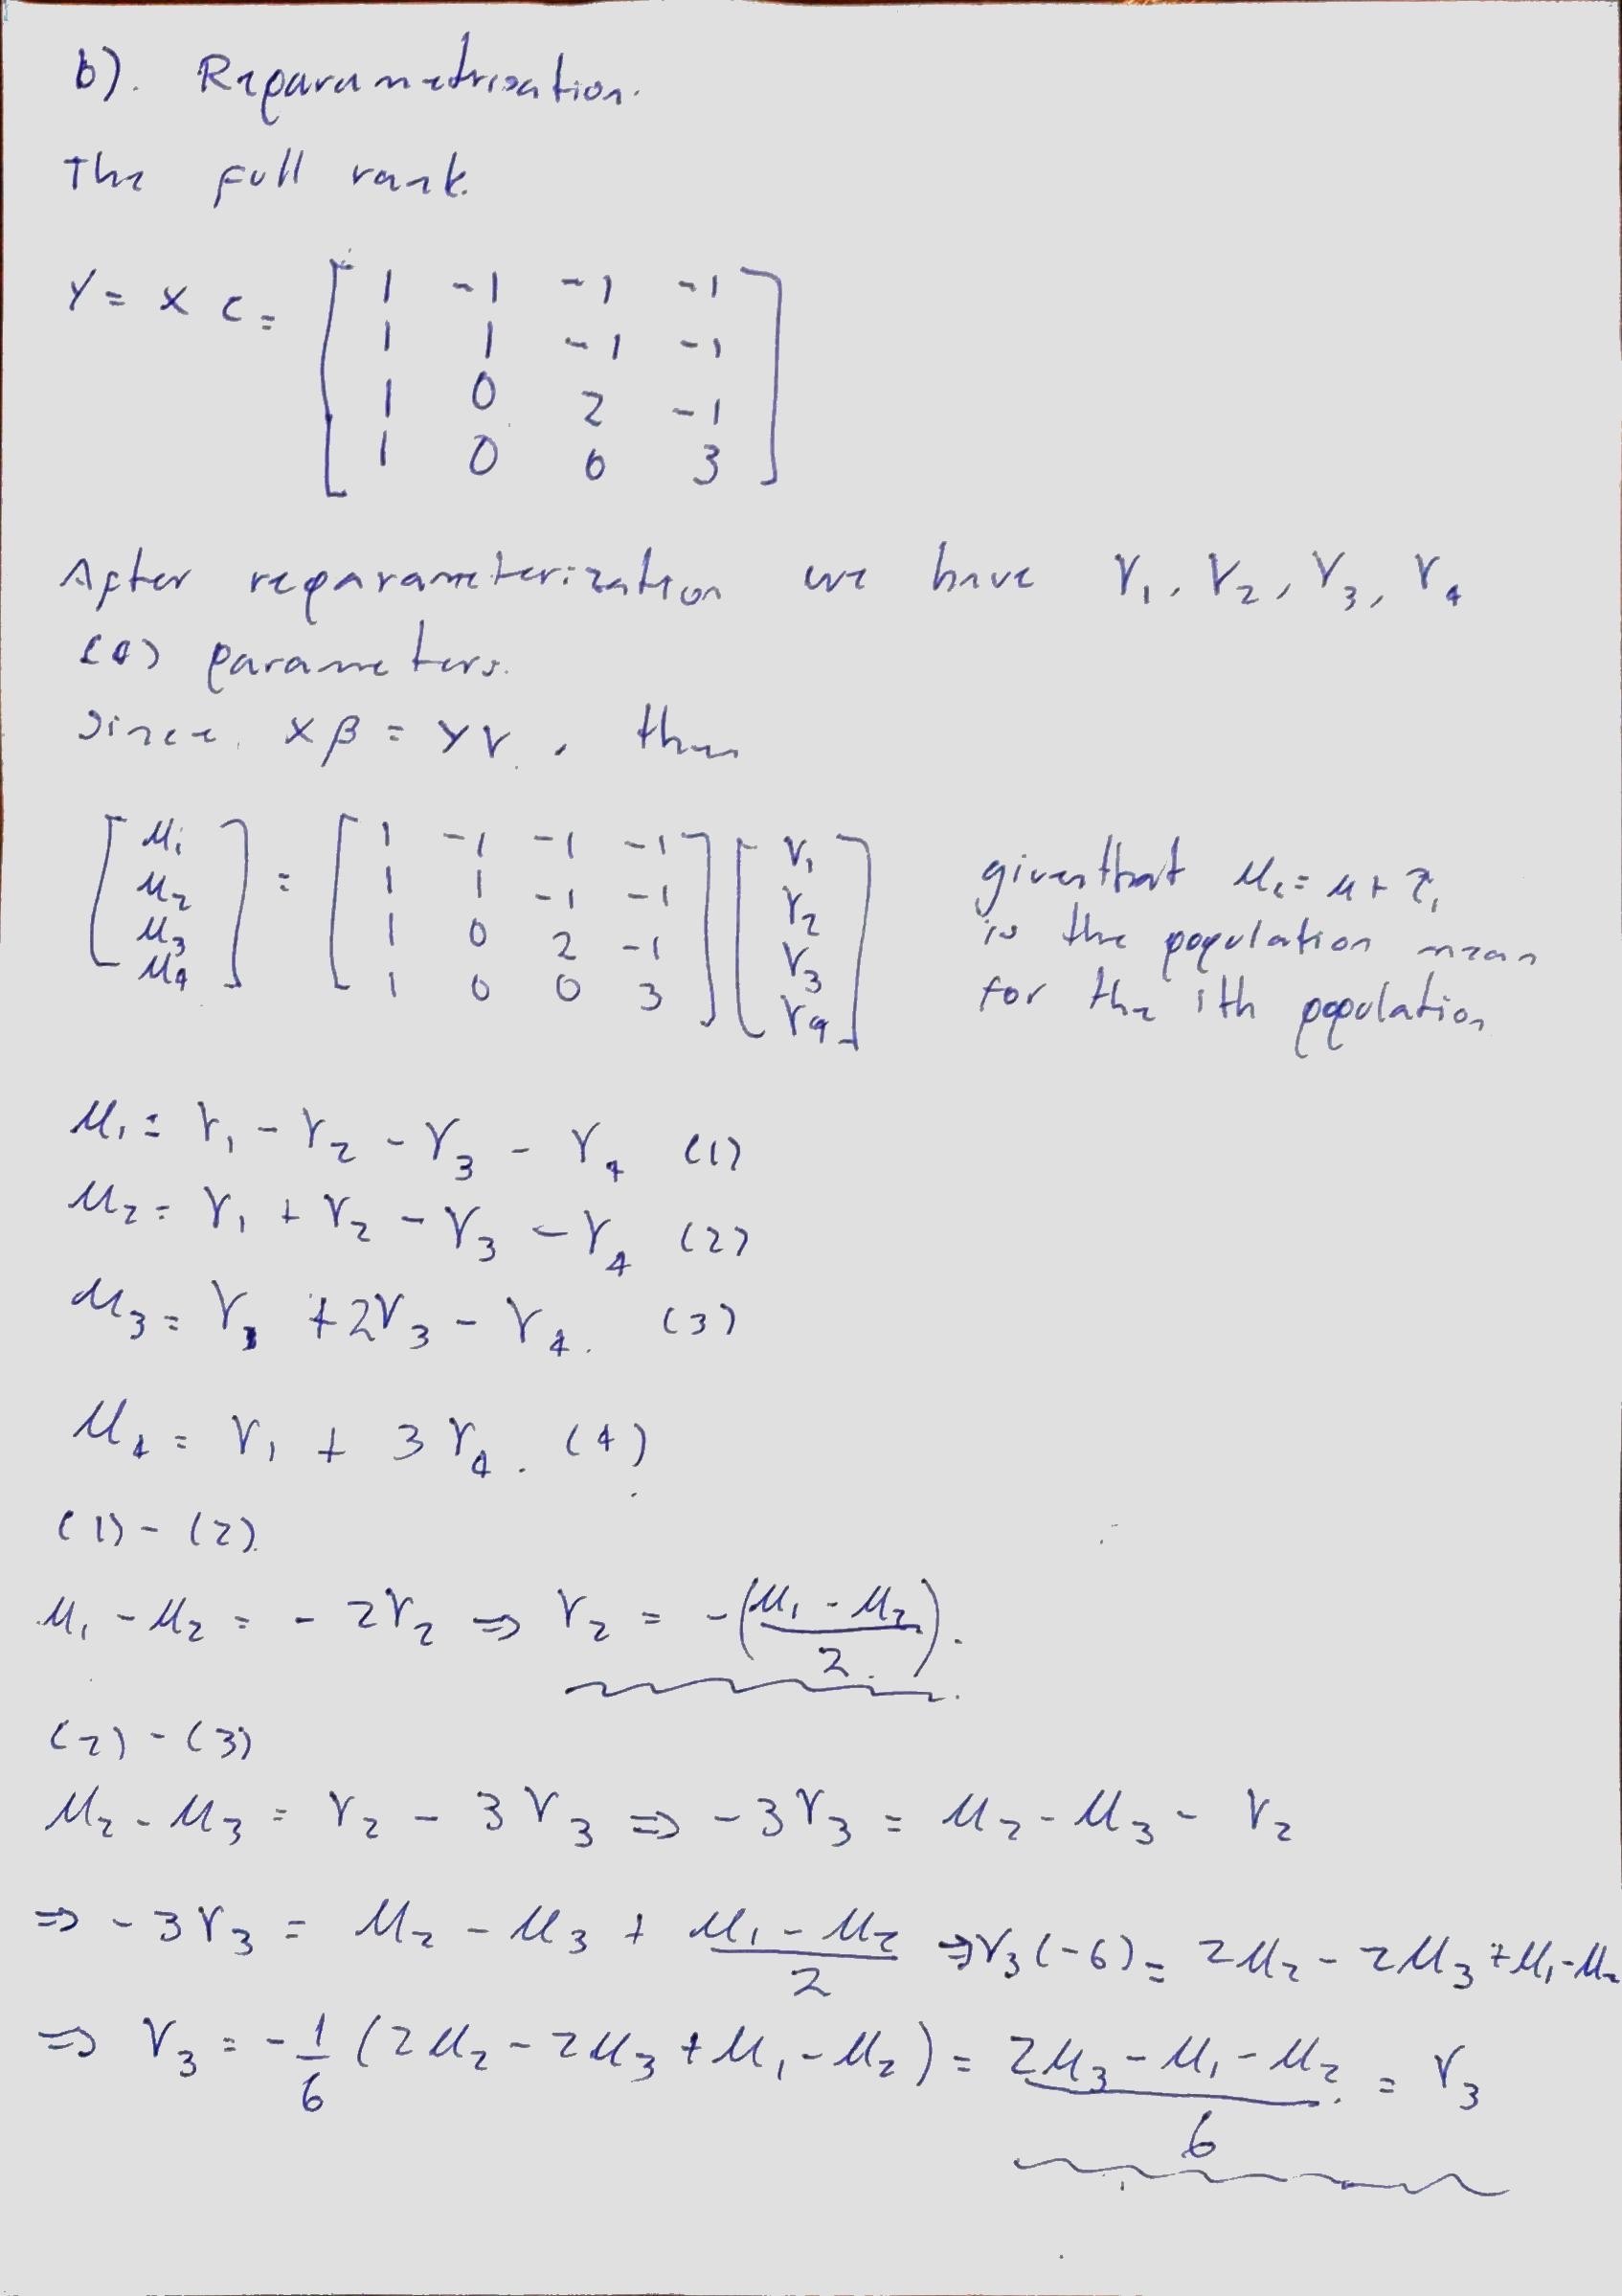 b). Reparametrisation.
The full rank.
Y = X C = [ 1 -1 -1 -1
1 1 -1 -1
1 0 2 -1
1 0 0 3 ]
After reparameterization we have γ₁, γ₂, γ₃, γ₄
(4) parameters.
Since Xβ = Yγ, then
[ μ₁ μ₂ μ₃ μ₄ ] = [ 1 -1 -1 -1 ; 1 1 -1 -1 ; 1 0 2 -1 ; 1 0 0 3 ] [ γ₁ γ₂ γ₃ γ₄ ]
given that μᵢ = μ + τᵢ
is the population mean
for the ith population
μ₁ = γ₁ - γ₂ - γ₃ - γ₄ (1)
μ₂ = γ₁ + γ₂ - γ₃ - γ₄ (2)
μ₃ = γ₁ + 2γ₃ - γ₄. (3)
μ₄ = γ₁ + 3γ₄. (4)
(1) - (2).
μ₁ - μ₂ = - 2γ₂ ⇒ γ₂ = -((μ₁ - μ₂)/2).
(2) - (3)
μ₂ - μ₃ = γ₂ - 3γ₃ ⇒ -3γ₃ = μ₂ - μ₃ - γ₂
⇒ -3γ₃ = μ₂ - μ₃ + (μ₁ - μ₂)/2 ⇒ γ₃(-6) = 2μ₂ - 2μ₃ + μ₁ - μ₂
⇒ γ₃ = -1/6 (2μ₂ - 2μ₃ + μ₁ - μ₂) = (2μ₃ - μ₁ - μ₂)/6 = γ₃